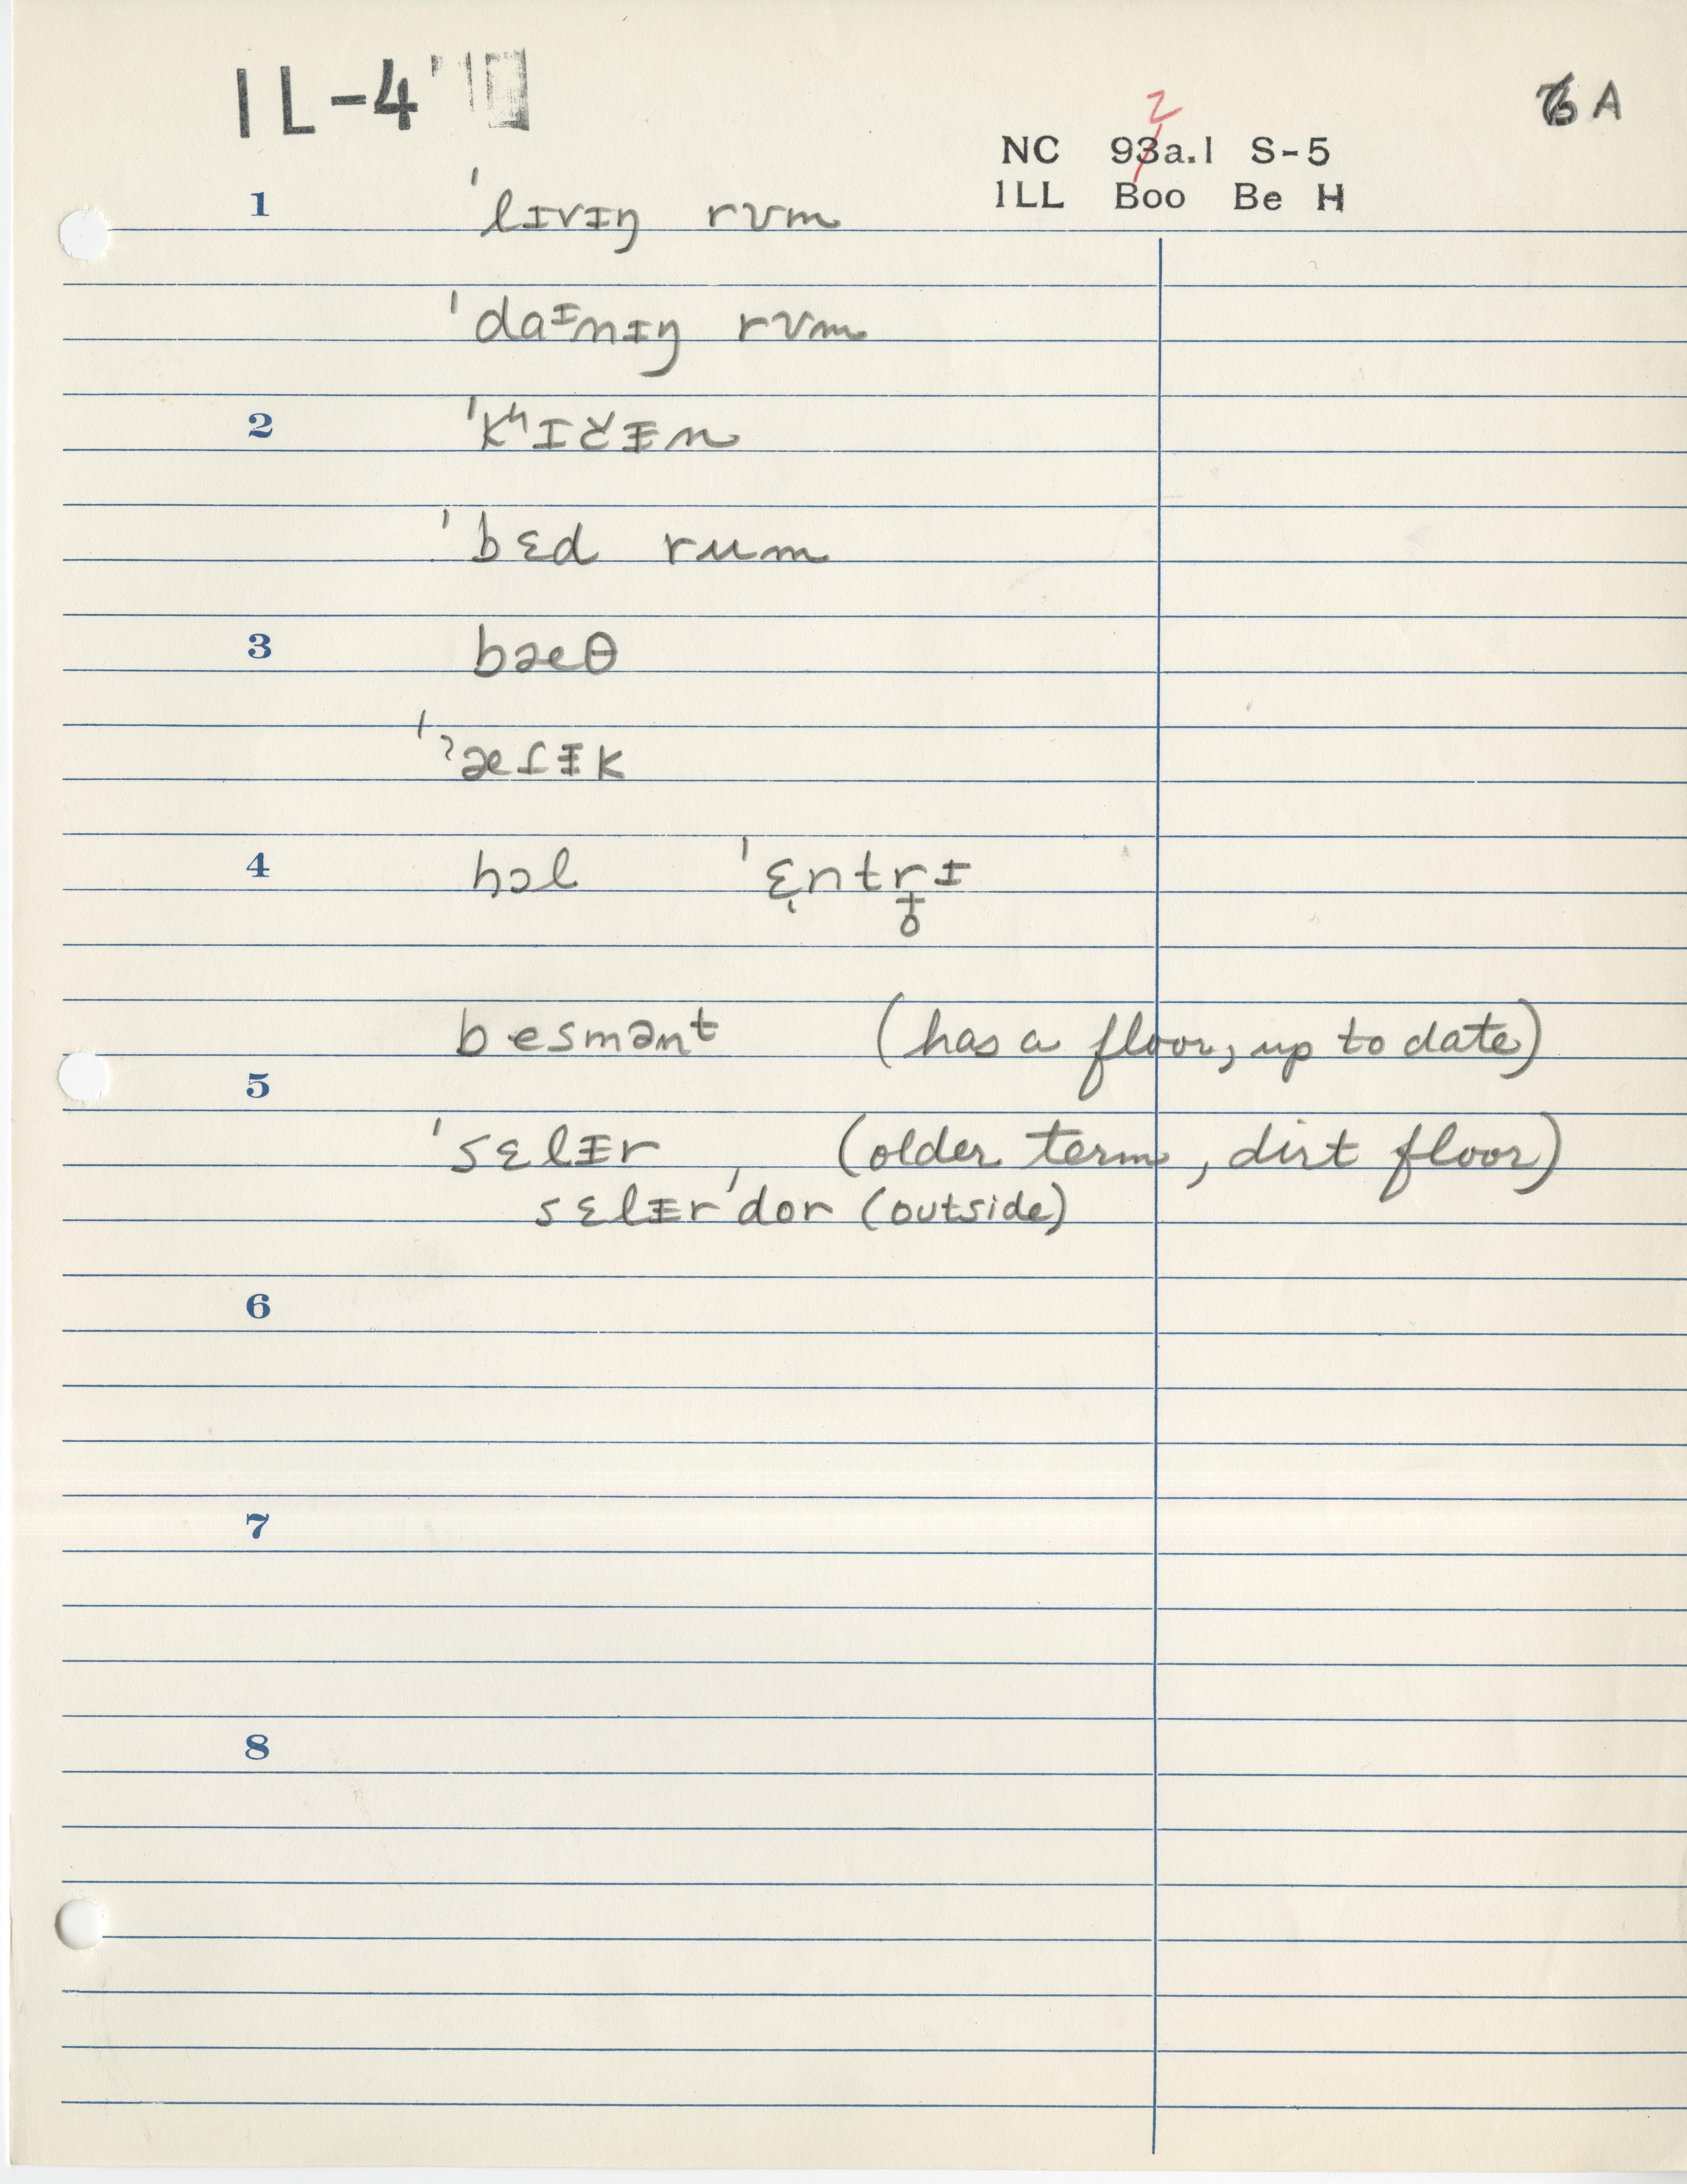 IL-4
6A
NC 92a.1 S-5
ILL Boo Be H
1 ˈlɪvɪŋ rʊm
ˈdaᶦnɪŋ rʊm
2 ˈkʰɪtʃɨn
ˈbɛd rum
3 bæθ
ˈˀæʃɨk
4 hɔl ˈɛntrɪ
besmənᵗ (has a floor, up to date)
5
ˈsɛlɨr, (older term, dirt floor)
sɛlɨrˈdor (outside)
6
7
8